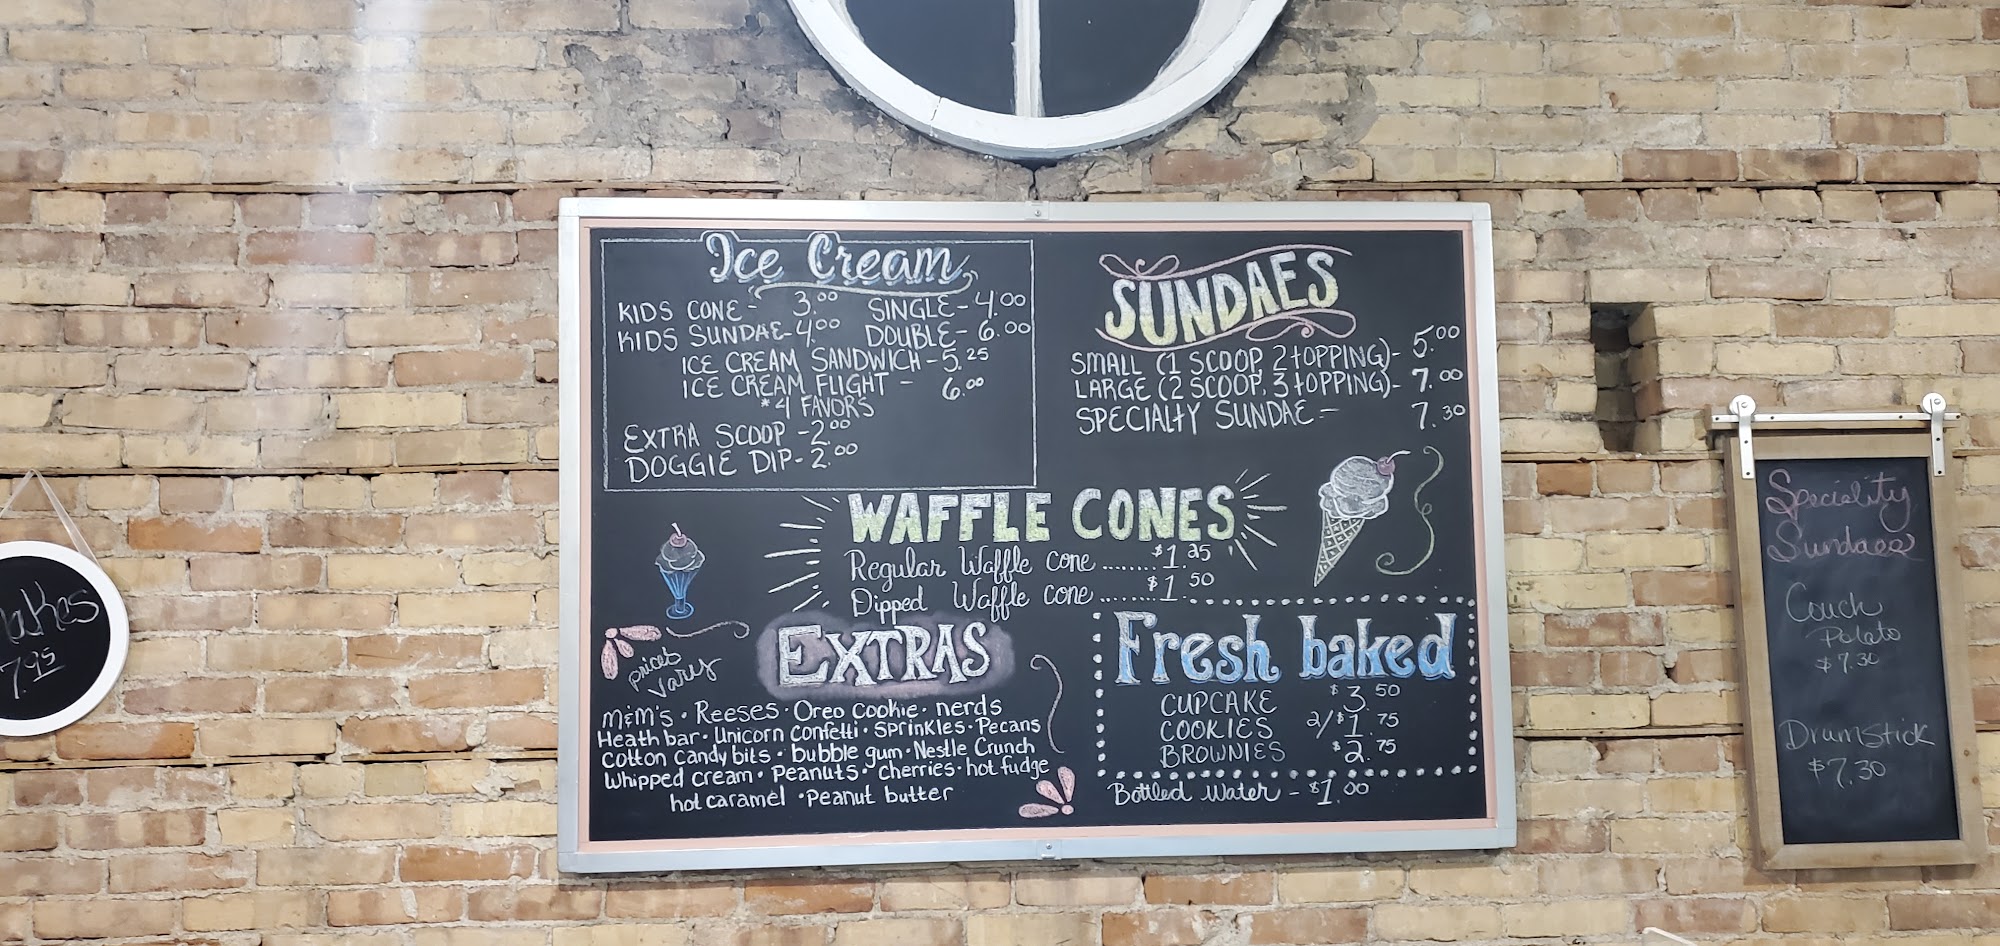 Ice Cream
KIDS CONE - 3.00 SINGLE - 4.00
KIDS SUNDAE - 4.00 DOUBLE - 6.00
ICE CREAM SANDWICH - 5.25
ICE CREAM FLIGHT - 6.00
*4 FAVORS
EXTRA SCOOP - 2.00
DOGGIE DIP - 2.00
SUNDAES
SMALL (1 SCOOP, 2 tOPPING) - 5.00
LARGE (2 SCOOP, 3 tOPPING) - 7.00
SPECIALtY SUNDAE - 7.30
WAFFLE CONES
Regular Waffle cone ........ $1.25
Dipped Waffle cone ........ $1.50
EXTRAS
prices
vary
M&M's • Reeses • Oreo Cookie • nerds
Heath bar • Unicorn Confetti • Sprinkles • Pecans
cotton candy bits • bubble gum • Nestle Crunch
Whipped cream • Peanuts • Cherries • hot fudge
hot caramel • Peanut butter
Fresh baked
CUPCAKE $3.50
COOKIES 2/$1.75
BROWNIES $2.75
Bottled Water - $1.00
Speciality
Sundaes
Couch
Potato
$7.30
Drumstick
$7.30
akes
7.95